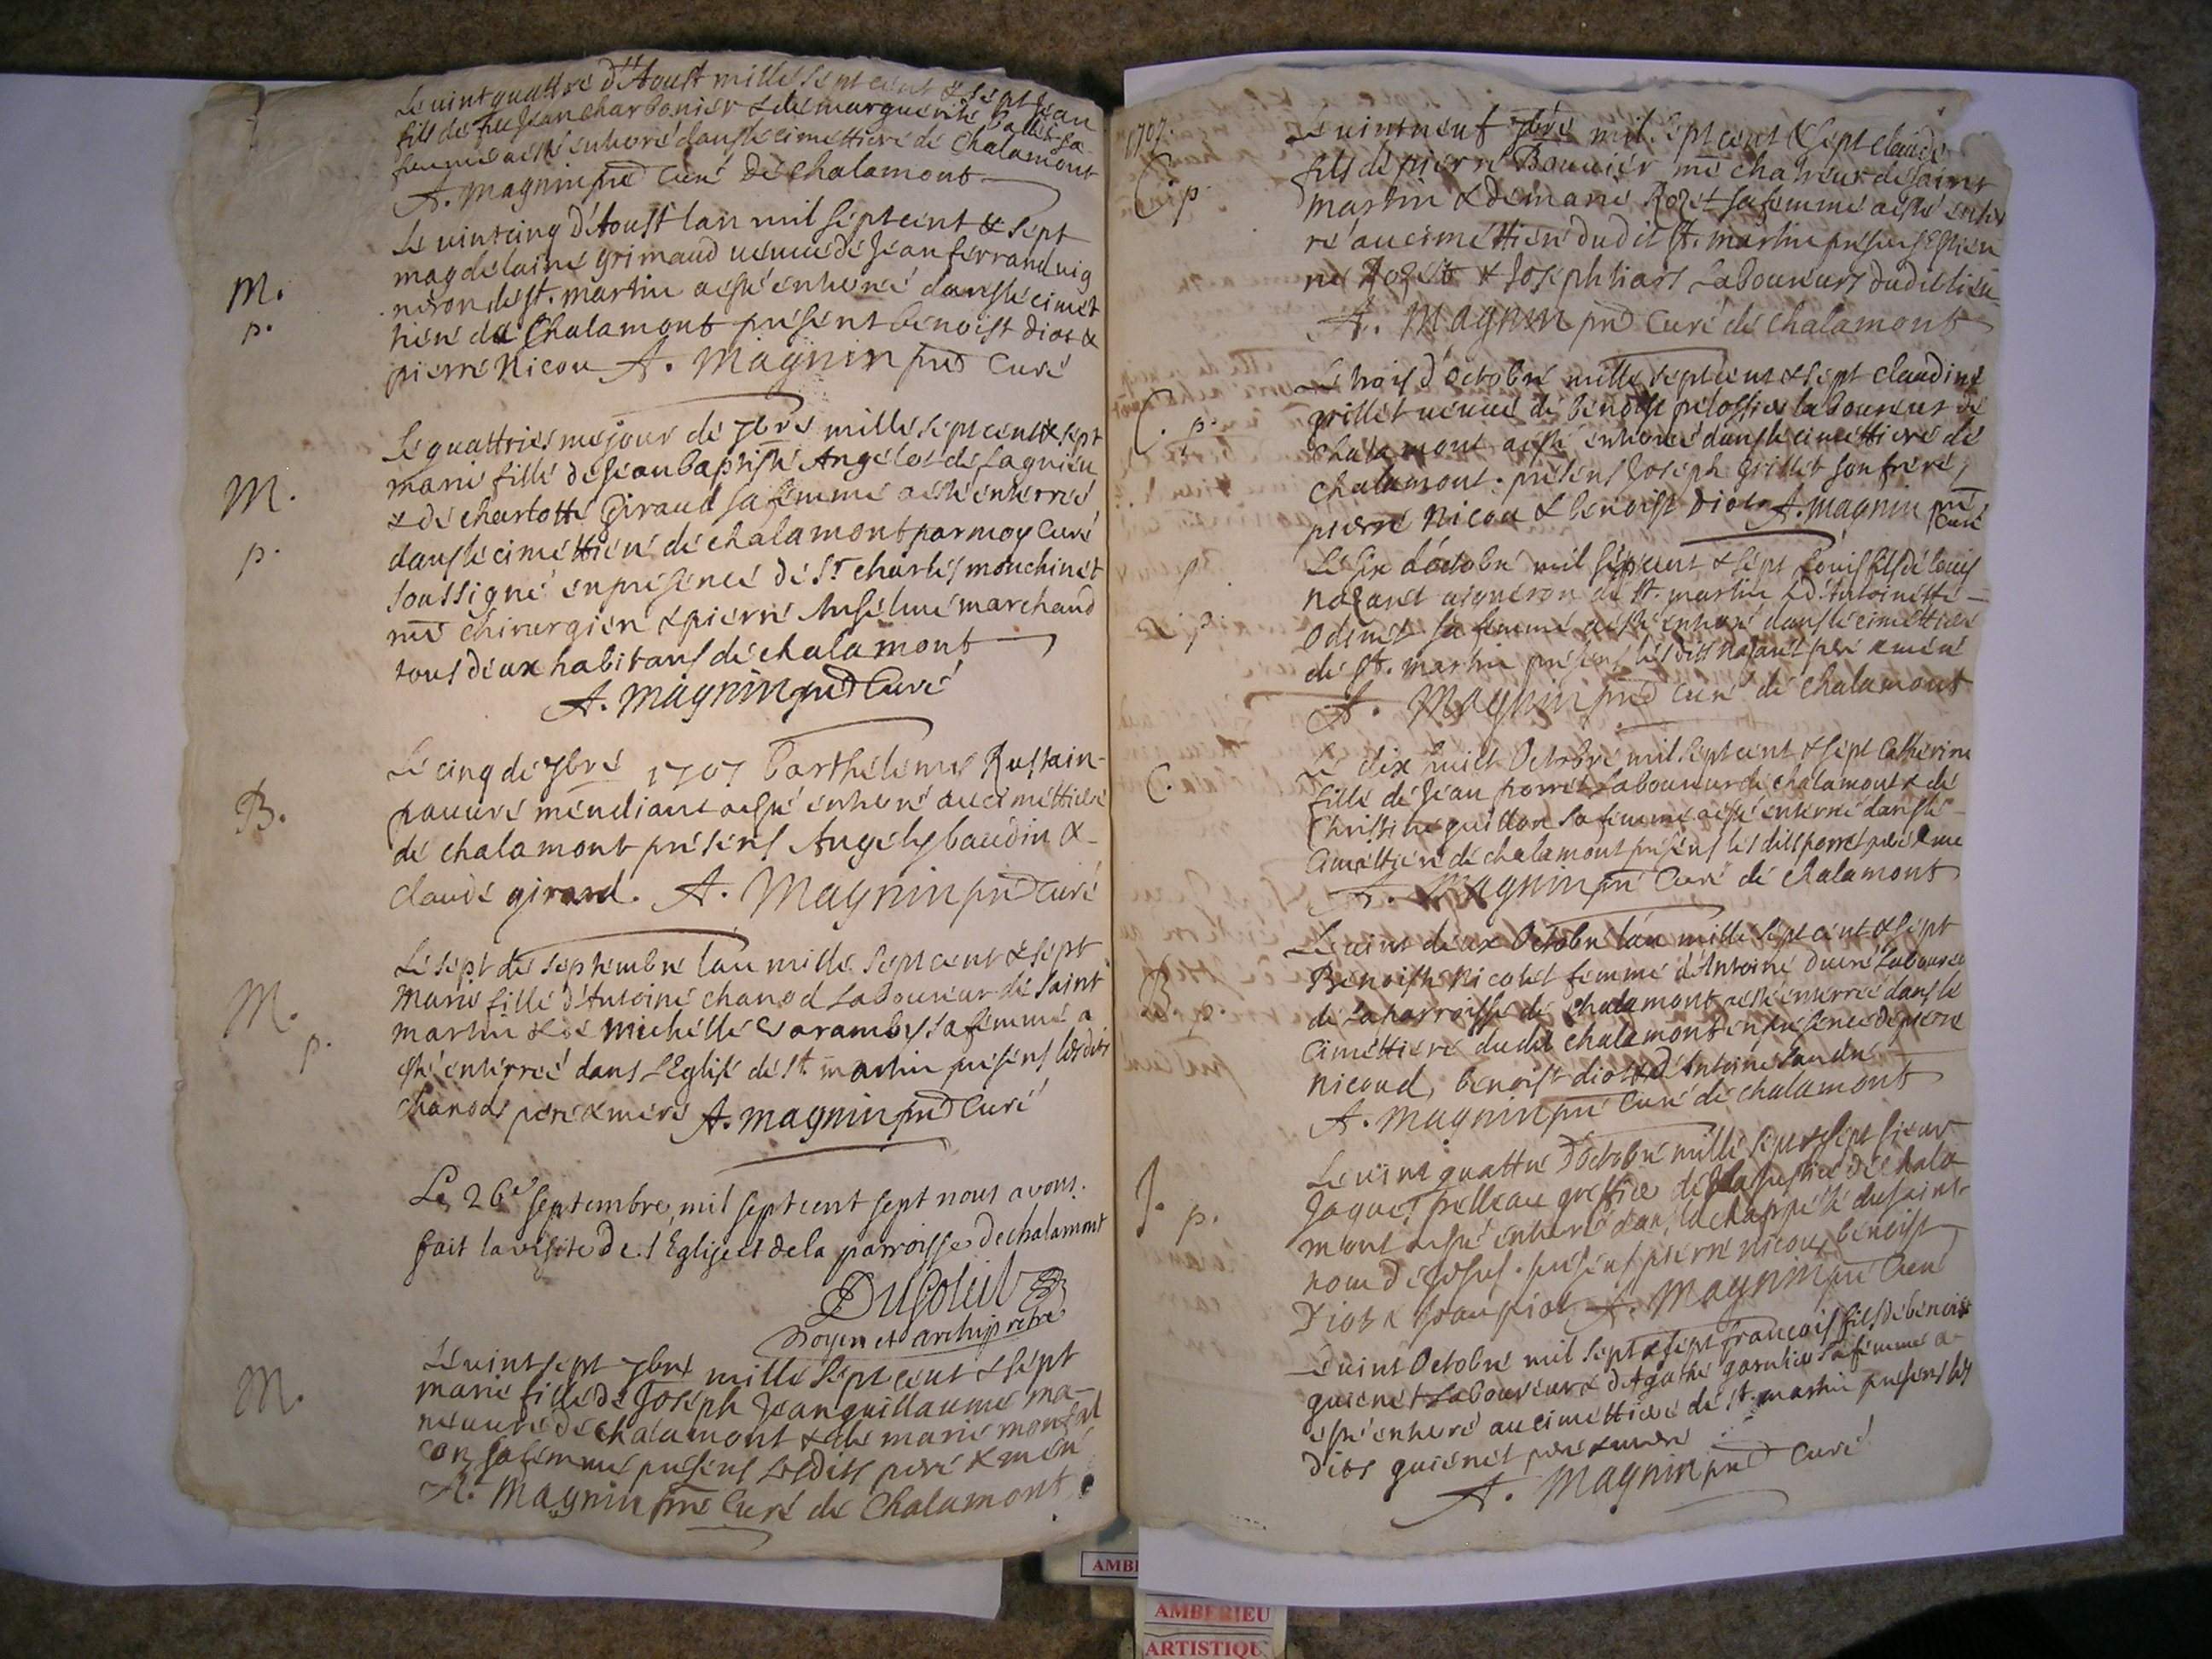 Le vint quattre d'Aoust mille sept cent & sept Jean
fils de feu Jean charbonier & de marguerite Ballet sa
femme a esté enterré dans le cimettiere de Chalamont
A. Magnin pre Curé de Chalamont
M.
p.
Le vintcinq d'Aoust lan mil sept cent & sept
magdelaine grimaud veuve de Jean ferrand vig
neron de st. martin a esté enterré dans le cimet
tiere de Chalamont présent benoist diot &
pierre Nicou A. Magnin pre Curé
M.
p.
Le quattriesme jour de 7bre mille sept cent & sept
marie fille de Jean baptiste Angelot de Lagnieu
& de charlotte Giraud sa femme a esté enterreé
dans le cimettiere de chalamont par moy Curé
soussigné en présence de Sr charles monchinet
me chirurgien & pierre Anselme marchand
tous deux habitans de chalamont
A. Magnin pre Curé
B.
Le cinq de 7bre 1707 barthelemy Rustain
pauvre mendiant a esté enterré au cimettiere
de chalamont présens Angelys baudin &
claude girard. A. Magnin pre Curé
M.
p.
Le sept de septembre lan mille sept cent & sept
Marie fille d'Antoine chanod Laboureur de saint
martin & de michelle sa femme a
esté enterreé dans L'Eglise de st martin présens lesdits
chanods pere & mere A. Magnin pre Curé
Le 26e septembre mil sept cent sept nous avons
fait la visite de l'Eglise et de la parroisse de chalamont
Dusoleil
Doyen et archiprebre
M.
Le vint sept 7bre mille sept cent & sept
marie fille de Joseph Jeanguillaume ma-
neuvre de chalamont & de marie monfal
con sa femme présens Lesdits pere & mere
A. Magnin pre Curé de Chalamont
1707.
C. p.
Le vint neuf 7bre mil sept cent & sept claude
fils de pierre Bouvier me chatreur de saint
martin & de marie Rozet sa femme a esté enter
ré au cimettiere dudit st. martin présens Estien
ne Rozet & Joseph liars Laboureurs dudit lieu
A. Magnin pre Curé de chalamont
C. p.
Le trois d'octobre mille sept cent & sept claudine
grillet veuve de benoist pelossier laboureur de
chalamont a esté enterreé dans le cimettiere de
Chalamont. présens Joseph Grillet son frere,
pierre Nicou & benoist diot A. Magnin pre
Curé
p.
Le six d'octobre mil sept cent & sept Louis fils de louis
nazaret vigneron de st. martin & d'Antoinette
odenet sa femme a esté enterré dans le cimettiere
de st. martin présens lesdits nazaret pere & mere
A. Magnin pre Curé de Chalamont
C.
Le dix huict Octobre mil sept cent & sept Catherine
fille de Jean porret Laboureur de chalamont & de
Christine guillon sa femme a esté enterré dans le
Cimettiere de chalamont présens lesdits porret pere & me
A. Magnin pre Curé de Chalamont
B. p.
Le vint deux Octobre lan mille sept cent & sept
Benoiste Nicolet femme d'Antoine ducré Laboureu
de la parroisse de Chalamont a esté enterreé dans le
Cimettiere dudit chalamont en présence de pierre
Nicoud, benoist diot & d'Antoine Landre
A. Magnin pre Curé de chalamont
J. p.
Le vint quattre d'octobre mille sept & sept sieur
Jaques pelleau greffier de la Justice de chala
mont a esté enterré dans la chappelle du saint
nom de Jesus. présens pierre nicou, benoist
Diot & Jean piot A. Magnin pre Curé
Le vint Octobre mil sept & sept françois fils de benoist
guienet Laboureur & d'Agathe garnier sa femme a
esté enterré au cimettiere de st. martin présens les
dits guienet pere & mere
A. Magnin pre Curé
AMBE
AMBERIEU
ARTISTIQU